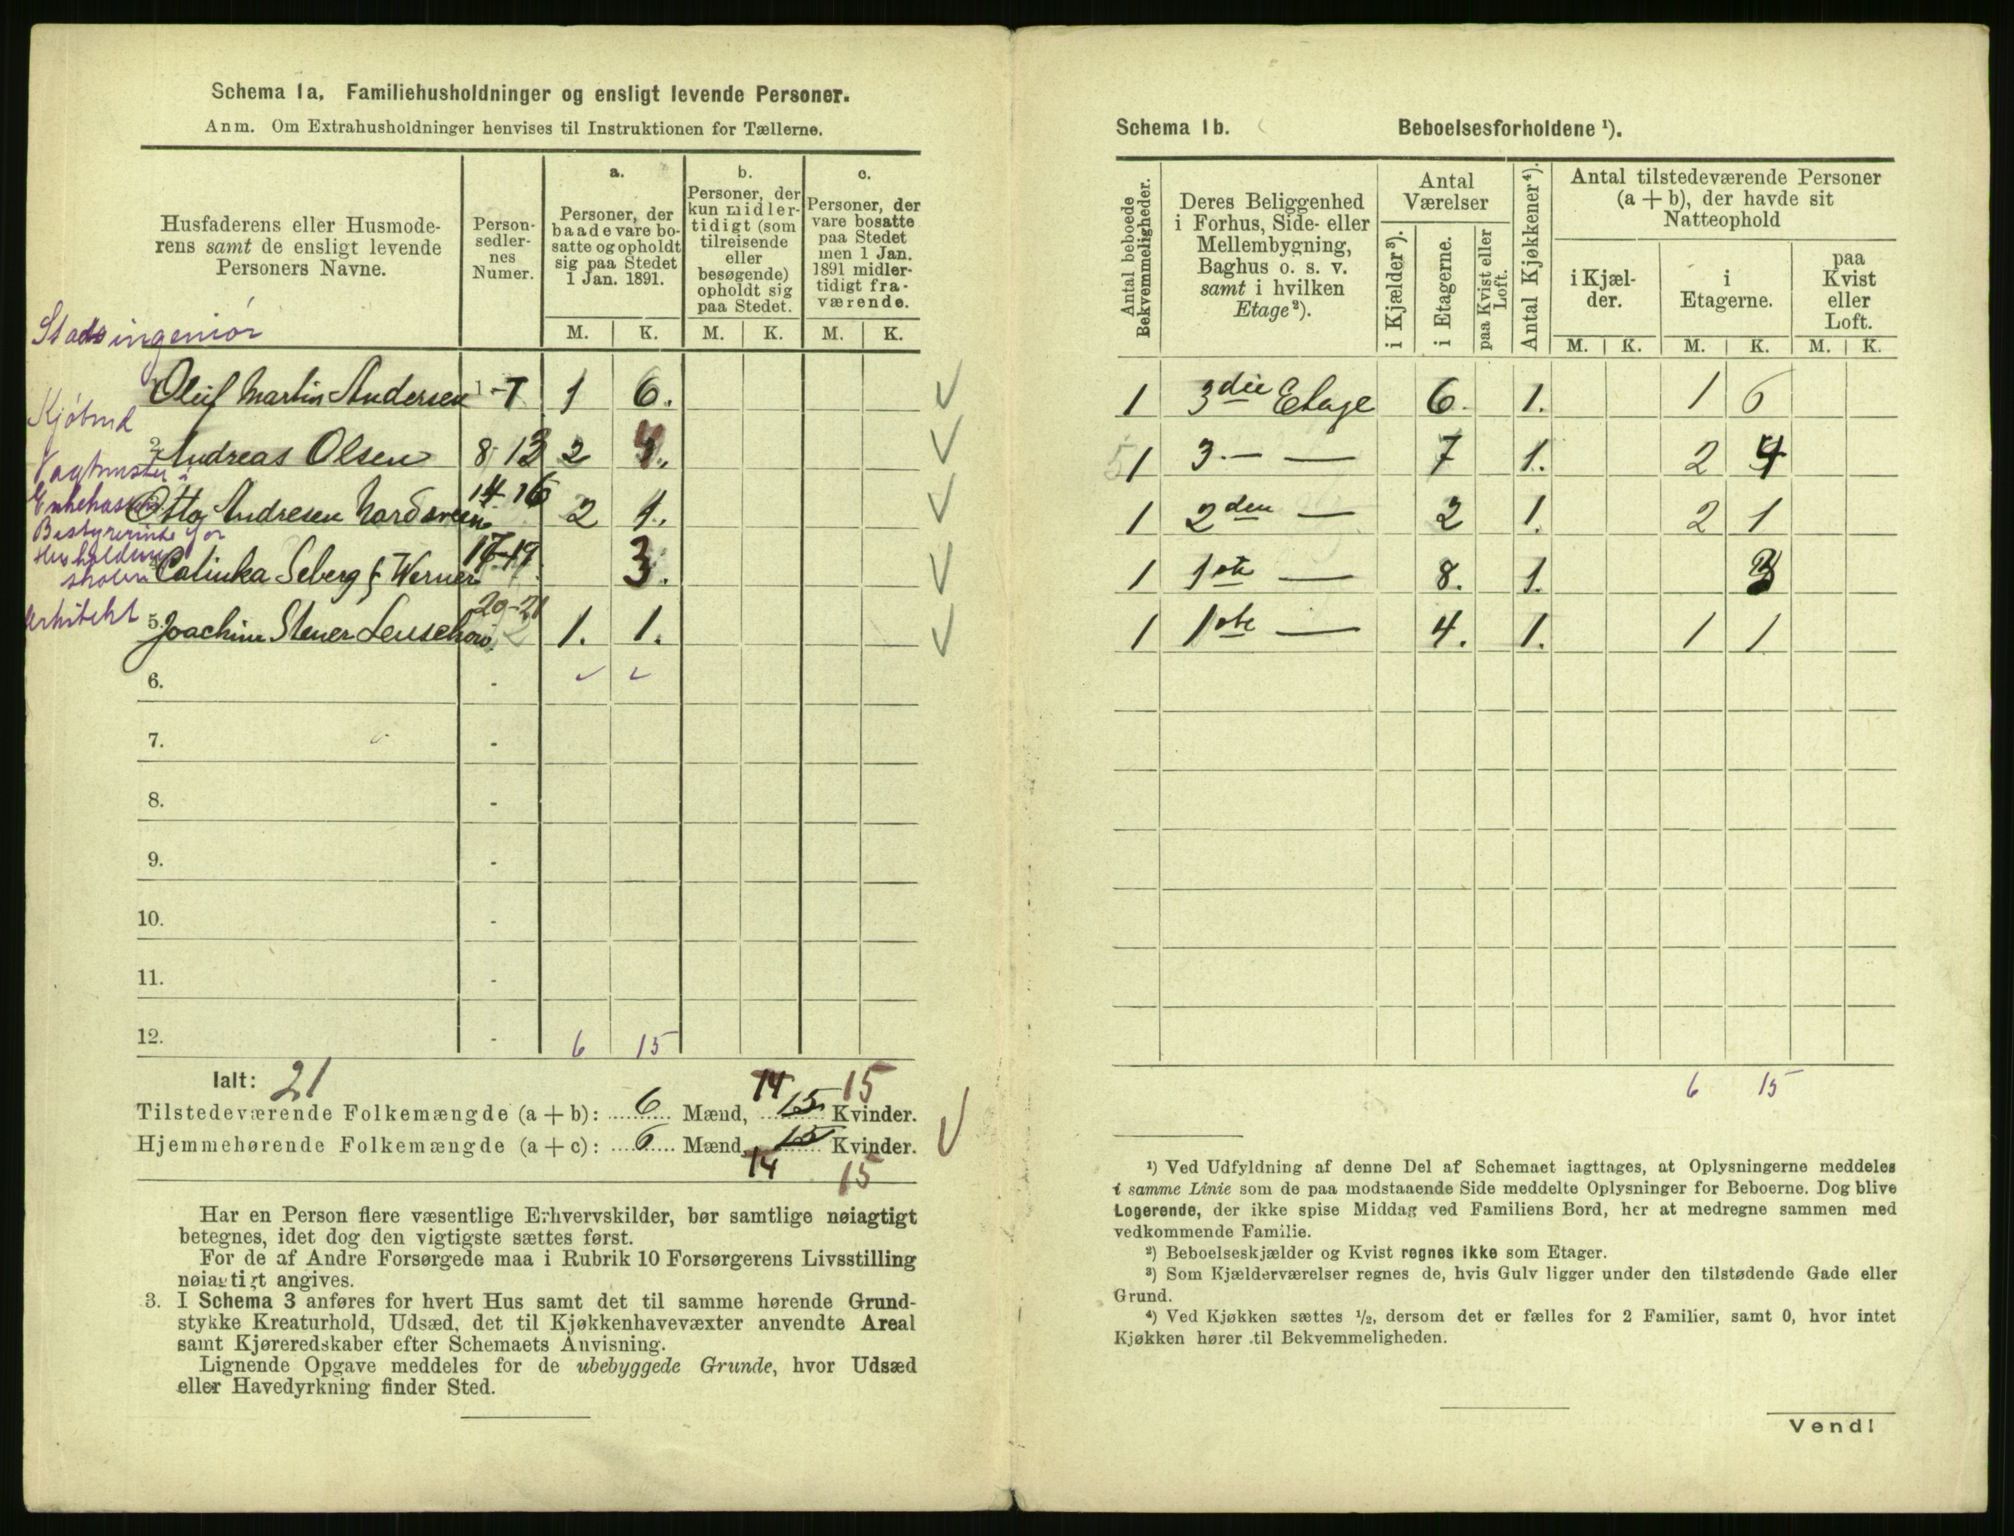 Schema 1a. Familiehusholdninger og ensligt levende Personer.
Anm. Om Extrahusholdninger henvises til Instruktionen for Tællerne.
Husfaderens eller Husmode-
rens samt de ensligt levende
Personers Navne.
Person-
sedler-
nes
Numer.
a.
Personer, der
baade vare bo-
satte og opholdt
sig paa Stedet
1 Jan. 1891.
b.
Personer, der
kun midler-
tidigt (som
tilreisende
eller
besøgende)
opholdt sig
paa Stedet.
c.
Personer, der
vare bosatte
paa Stedet
men 1 Jan.
1891 midler-
tidigt fra-
værende.
M. K. M. K. M. K.
Stadsingeniør
Oluf Martin Andersen 1-7 1 6.
Kjøbmd
2. Andreas Olsen 8 13 2 4.
Vagtmester i
Enkekassen
Otto Andresen Nordsveen 14-16 2 1.
Bestyrerinde for
Husholdnings
skolen
Calinka Seberg f. Werner 17-19 3.
Arkitekt
5. Joachim Stener Lenschow 20-21 1. 1.
6. -
7. -
8. -
9. -
10. -
11. -
12. - 6 15
Ialt: 21
14 15
Tilstedeværende Folkemængde (a + b): 6 Mænd, 15 Kvinder.
Hjemmehørende Folkemængde (a + c): 6 Mænd, 15 Kvinder.
14 15
Har en Person flere væsentlige Erhvervskilder, bør samtlige nøiagtigt
betegnes, idet dog den vigtigste sættes først.
For de af Andre Forsørgede maa i Rubrik 10 Forsørgerens Livsstilling
nøiagtigt angives.
3. I Schema 3 anføres for hvert Hus samt det til samme hørende Grund-
stykke Kreaturhold, Udsæd, det til Kjøkkenhavevæxter anvendte Areal
samt Kjøreredskaber efter Schemaets Anvisning.
Lignende Opgave meddeles for de ubebyggede Grunde, hvor Udsæd
eller Havedyrkning finder Sted.
Schema 1b. Beboelsesforholdene ¹).
Antal beboede
Bekvemmeligheder.
Deres Beliggenhed
i Forhus, Side- eller
Mellembygning,
Baghus o. s. v.
samt i hvilken
Etage²).
Antal
Værelser
i Kjælder³).
i Etagerne.
paa Kvist eller
Loft.
Antal Kjøkkener⁴).
Antal tilstedeværende Personer
(a + b), der havde sit
Natteophold
i Kjæl-
der.
i
Etagerne.
paa
Kvist
eller
Loft.
M. K. M. K. M. K.
1 3die Etage 6. 1. 1 6
1 3. — — 7 1. 2 4
1 2den — 2 1. 2 1
1 1ste — 8. 1. 3
1 1ste — 4. 1. 1 1
6 15
¹) Ved Udfyldning af denne Del af Schemaet iagttages, at Oplysningerne meddeles
i samme Linie som de paa modstaaende Side meddelte Oplysninger for Beboerne. Dog blive
Logerende, der ikke spise Middag ved Familiens Bord, her at medregne sammen med
vedkommende Familie.
²) Beboelseskjælder og Kvist regnes ikke som Etager.
³) Som Kjælderværelser regnes de, hvis Gulv ligger under den tilstødende Gade eller
Grund.
⁴) Ved Kjøkken sættes ½, dersom det er fælles for 2 Familier, samt 0, hvor intet
Kjøkken hører til Bekvemmeligheden.
Vend!